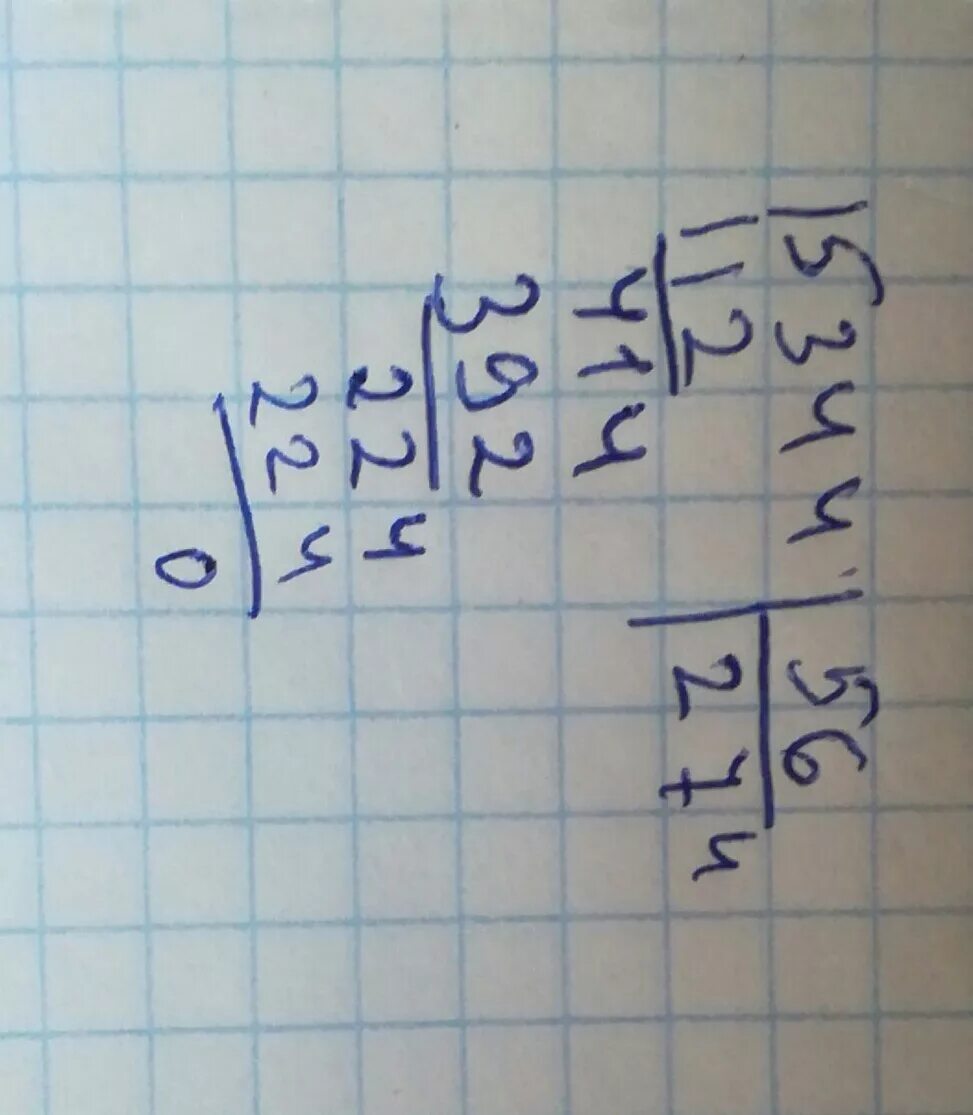 15344 56
112 274
414
392
224
224
0